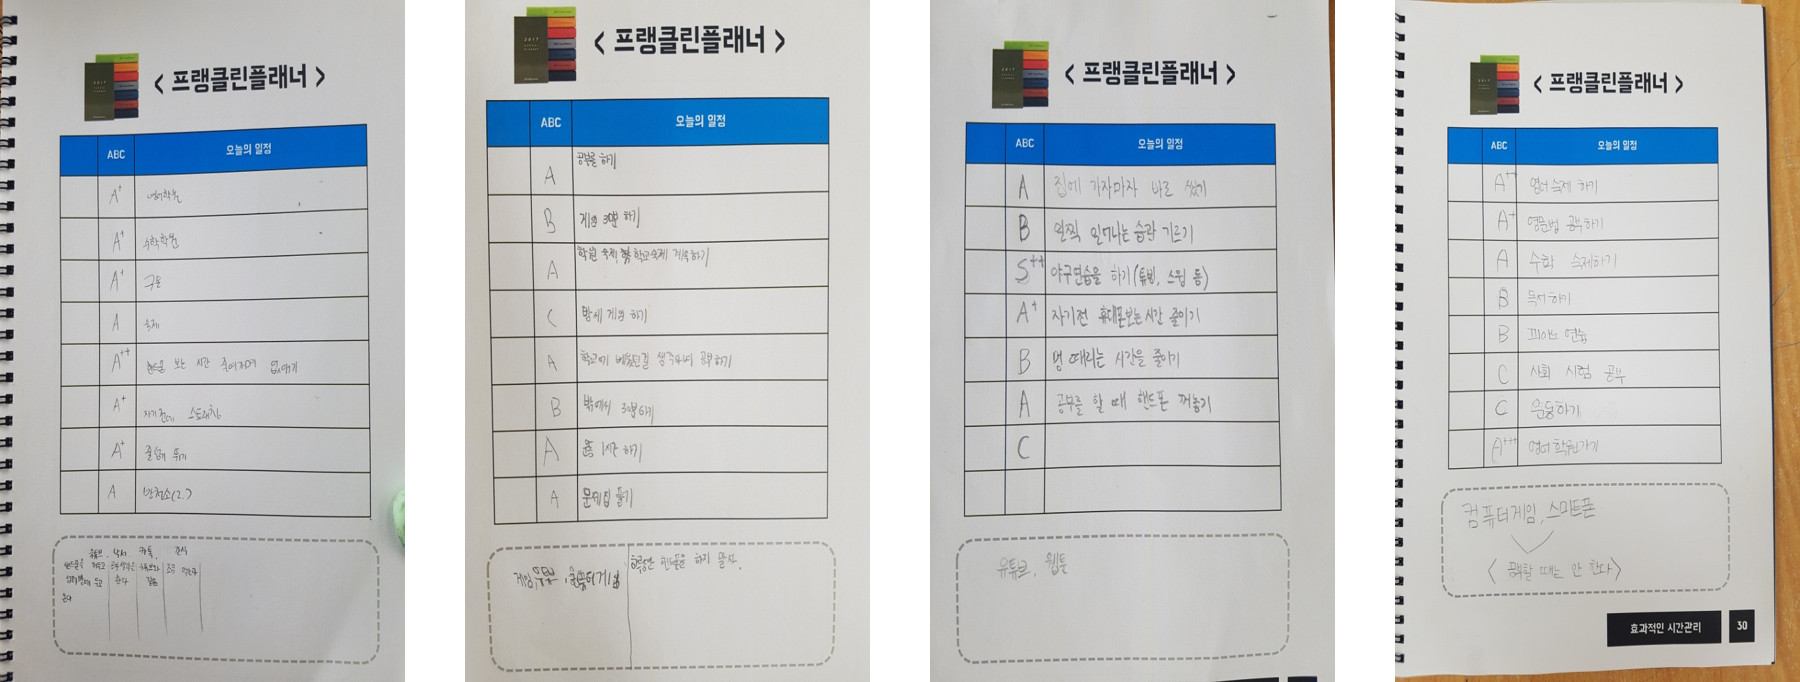 < 프랭클린플래너 >
ABC 오늘의 일정
A+ 영어학원
A+ 수학학원
A+ 구몬
A 숙제
A++ 핸드폰 보는 시간 줄이거나 없애기
A+ 자기전에 스트레칭
A+ 줄넘기 뛰기
A 방청소
유튜브, 낚시, 카톡, 간식
< 프랭클린플래너 >
ABC 오늘의 일정
A 공부를 하기
B 게임 30분 하기
A 학원 숙제, 학교숙제 계속하기
C 밤새 게임 하기
A 학교에서 배웠던걸 생각하며 공부하기
B 밖에서 30분하기
A 운동 1시간 하기
A 문제집 풀기
게임, 유튜브, 컴퓨터게임
하루만 핸드폰을 하지 말자.
< 프랭클린플래너 >
ABC 오늘의 일정
A 집에 가자마자 바로 씻기
B 일찍 일어나는 습관 기르기
S++ 야구연습을 하기(튜빙, 스윙 등)
A+ 자기전 휴대폰보는시간 줄이기
B 멍 때리는 시간을 줄이기
A 공부를 할 때 핸드폰 꺼놓기
C
유튜브, 웹툰
< 프랭클린플래너 >
ABC 오늘의 일정
A++ 영어숙제 하기
A+ 영문법 공부하기
A 수학 숙제하기
B 독서하기
B 피아노 연습
C 사회 시험 공부
C 운동하기
A+++ 영어학원가기
컴퓨터게임, 스마트폰
< 공부할 때는 안 한다>
효과적인 시간관리 30